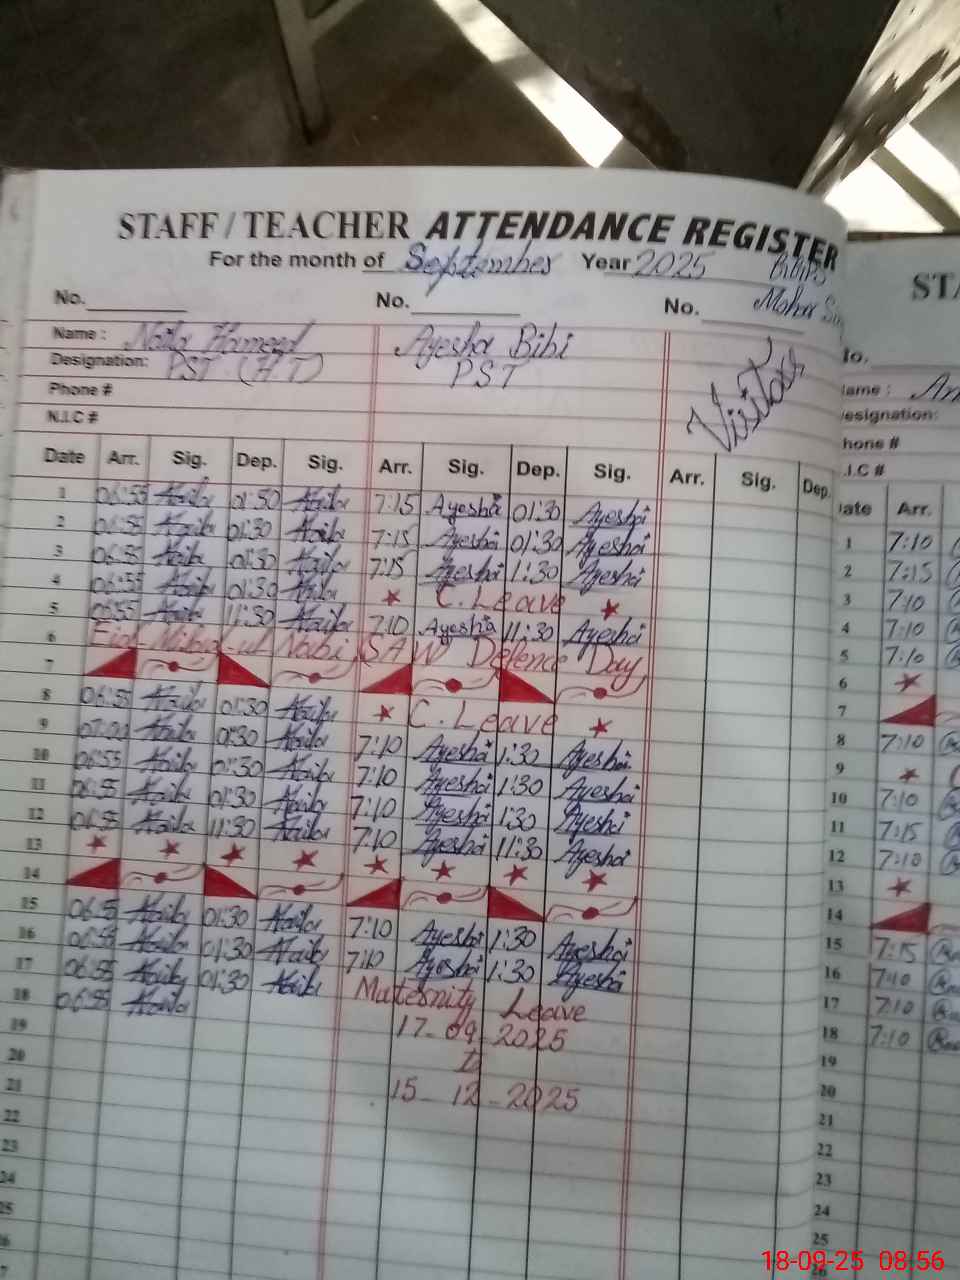 STAFF / TEACHER ATTENDANCE REGISTER
For the month of September Year 2025
No. No. No.
Name : Naila Hameed Ayesha Bibi
Designation: PST (HT) PST
Phone #
N.I.C #
Date Arr. Sig. Dep. Sig. Arr. Sig. Dep. Sig. Arr. Sig. Dep.
1 06:55 Naila 01:30 Naila 7:15 Ayesha 01:30 Ayesha
2 06:55 Naila 01:30 Naila 7:15 Ayesha 01:30 Ayesha
3 06:55 Naila 01:30 Naila 7:15 Ayesha 1:30 Ayesha
4 06:55 Naila 01:30 Naila C. Leave
5 06:55 Naila 11:30 Naila 7:10 Ayesha 11:30 Ayesha
6 Eid Milad-ul Nabi SAW Defence Day
7
8 06:55 Naila 01:30 Naila C. Leave
9 07:00 Naila 01:30 Naila 7:10 Ayesha 1:30 Ayesha
10 06:55 Naila 01:30 Naila 7:10 Ayesha 1:30 Ayesha
11 06:55 Naila 01:30 Naila 7:10 Ayesha 1:30 Ayesha
12 06:55 Naila 11:30 Naila 7:10 Ayesha 11:30 Ayesha
13
14
15 06:55 Naila 01:30 Naila 7:10 Ayesha 1:30 Ayesha
16 06:55 Naila 01:30 Naila 7:10 Ayesha 1:30 Ayesha
17 06:55 Naila 01:30 Naila Maternity Leave
18 06:55 Naila 17-09-2025
19 to
20 15-12-2025
21
22
23
24
25
STA
No.
Name :
Designation:
Phone #
N.I.C #
Date Arr.
1 7:10
2 7:15
3 7:10
4 7:10
5 7:10
6
7
8 7:10
9
10 7:10
11 7:15
12 7:10
13
14
15 7:15
16 7:10
17 7:10
18 7:10
19
20
21
22
23
24
25
26
18-09-25 08:56